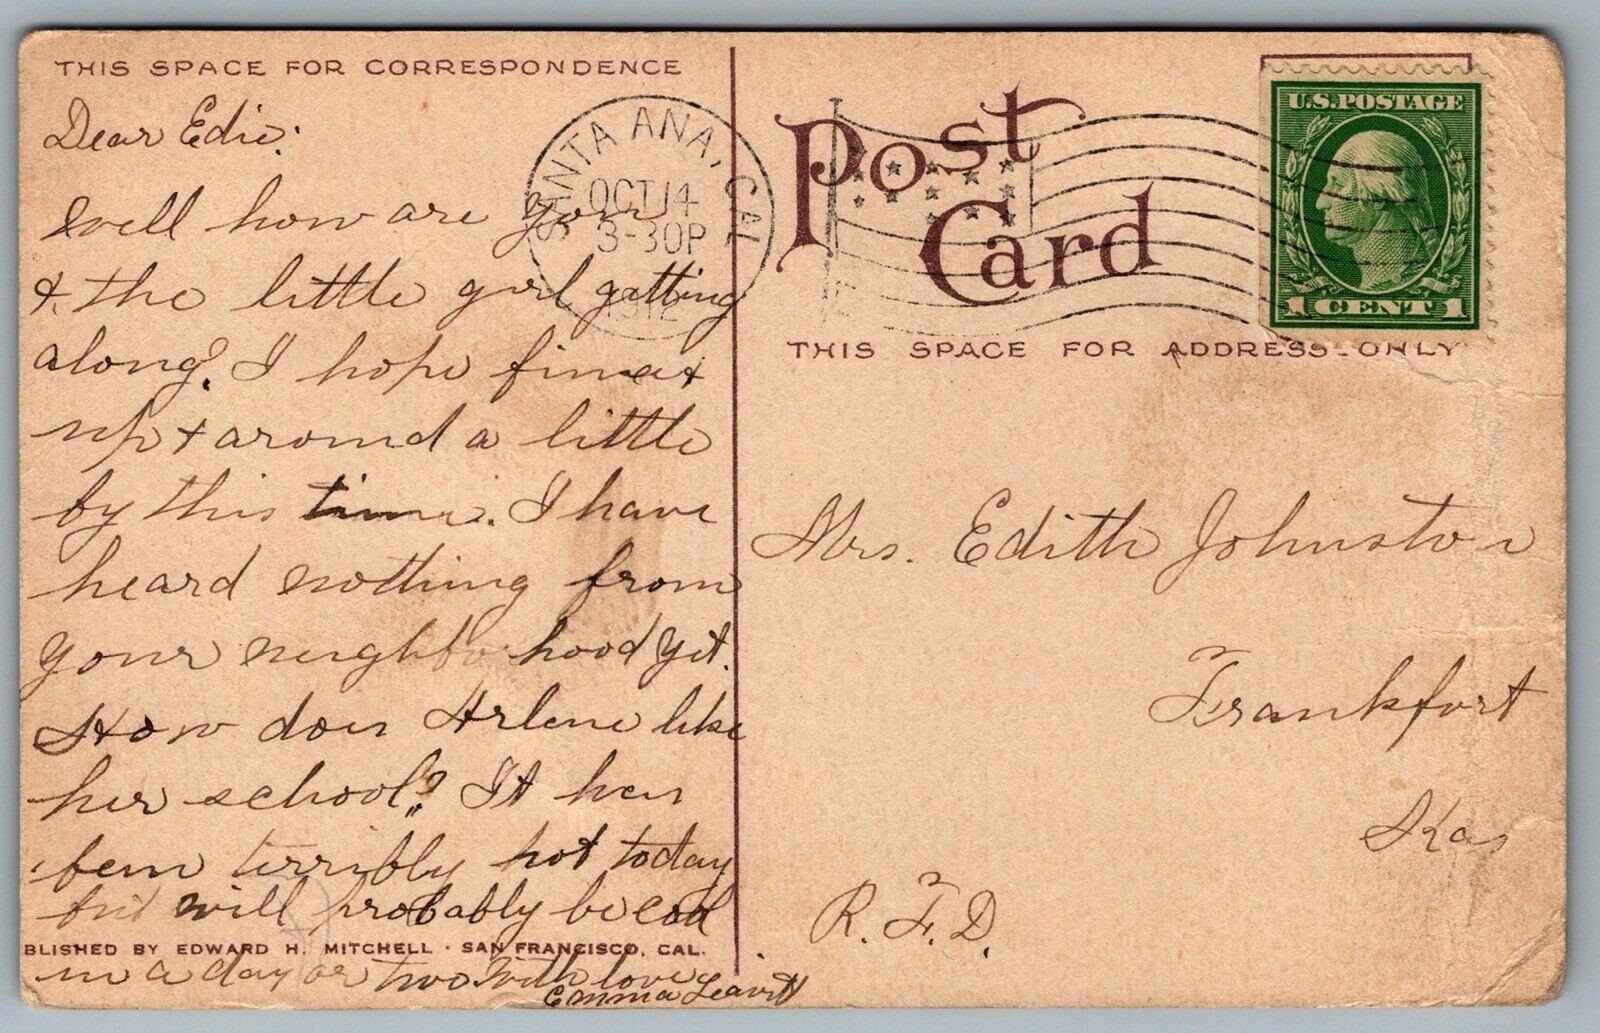 THIS SPACE FOR CORRESPONDENCE
Dear Edie:
Well how are you
& the little girl getting
along? I hope fine &
up & around a little
by this time. I have
heard nothing from
your neighborhood yet.
How does Arlene like
her school? It has
been terribly hot today
but will probably be cool
BLISHED BY EDWARD H. MITCHELL · SAN FRANCISCO, CAL.
in a day or two With love,
Emma Leavitt
SANTA ANA, CAL
OCT 14
3-30P
1912
Post
Card
U.S. POSTAGE
1 CENT 1
THIS SPACE FOR ADDRESS ONLY
Mrs. Edith Johnston
Frankfort
Kas
R. F. D.